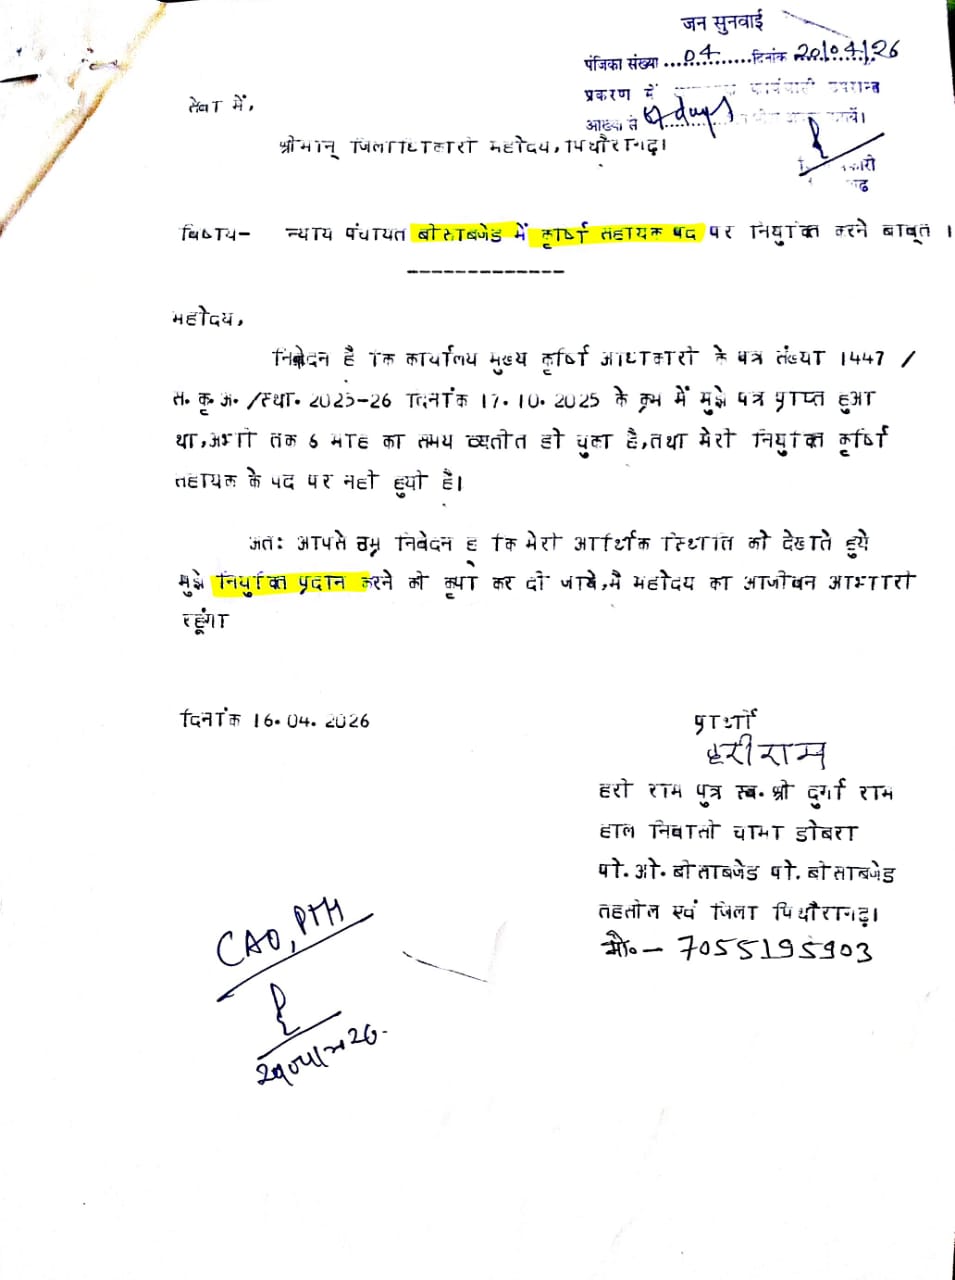 जन सुनवाई
पंजिका संख्या ....04.........दिनांक 20/04/26
प्रकरण में कार्यवाही उपरान्त
आख्या 07 days
सेवा में,
श्रीमान् जिलाधिकारी महोदय, पिथौरागढ़।
विषय- न्याय पंचायत बीसाबजेड में कृषि सहायक पद पर नियुक्ति करने बाबत् ।
--------------
महोदय,
निवेदन है कि कार्यालय मुख्य कृषि अधिकारी के पत्र संख्या 1447 /
स. कृ. अ. /स्था. 2025-26 दिनांक 17.10.2025 के क्रम में मुझे पत्र प्राप्त हुआ
था, अभी तक 6 माह का समय व्यतीत हो चुका है, तथा मेरी नियुक्ति कृषि
सहायक के पद पर नही हुयी है।
अतः आपसे नम्र निवेदन है कि मेरी आर्थिक स्थिति को देखते हुये
मुझे नियुक्ति प्रदान करने की कृपा कर दी जावे, मै महोदय का आजीवन आभारी
रहूंगा
दिनांक 16.04.2026
प्रार्थी
हरी राम
हरी राम पुत्र स्व. श्री दुर्गा राम
हाल निवासी चामा डोबरा
पो. ओ. बीसाबजेड पो. बीसाबजेड
तहसील एवं जिला पिथौरागढ़।
मो०- 7055195903
CAO, PTH